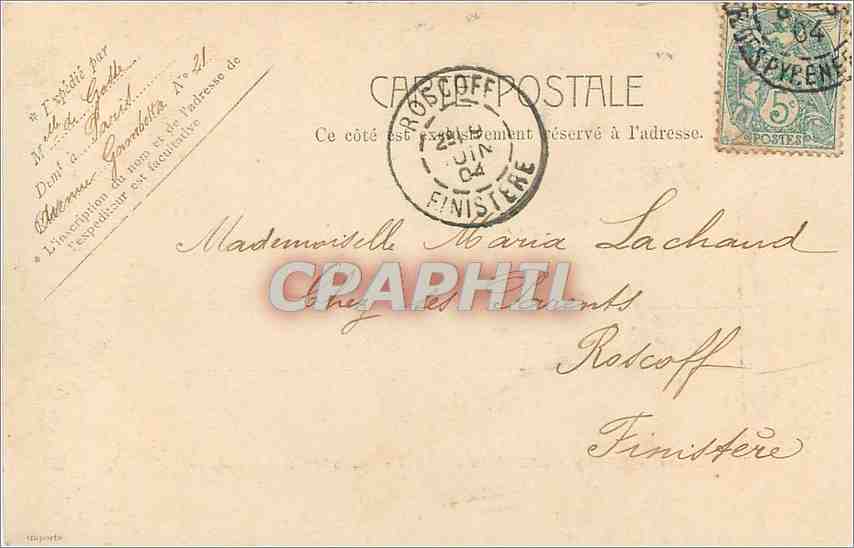 * Expédié par
Melle de Galle
Demt à Paris
Avenue Gambetta No 21
* L'inscription du nom et de l'adresse de
l'expéditeur est facultative
CARTE POSTALE
Ce côté est exclusivement réservé à l'adresse.
ROSCOFF
JUIN
04
FINISTERE
04
PYRENEES
5c
POSTES
Mademoiselle Maria Lachaud
Chez ses Parents
Roscoff
Finistère
CPAPHIL
importé